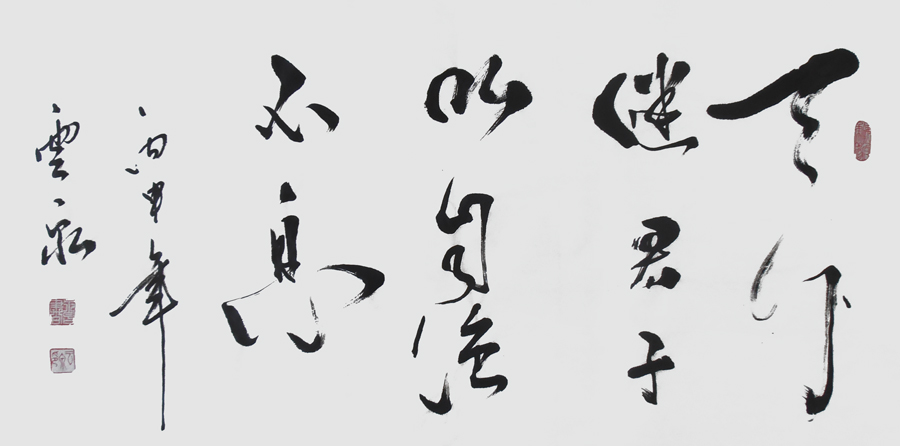 天行
健君子
以自强
不息
丙申年
雲